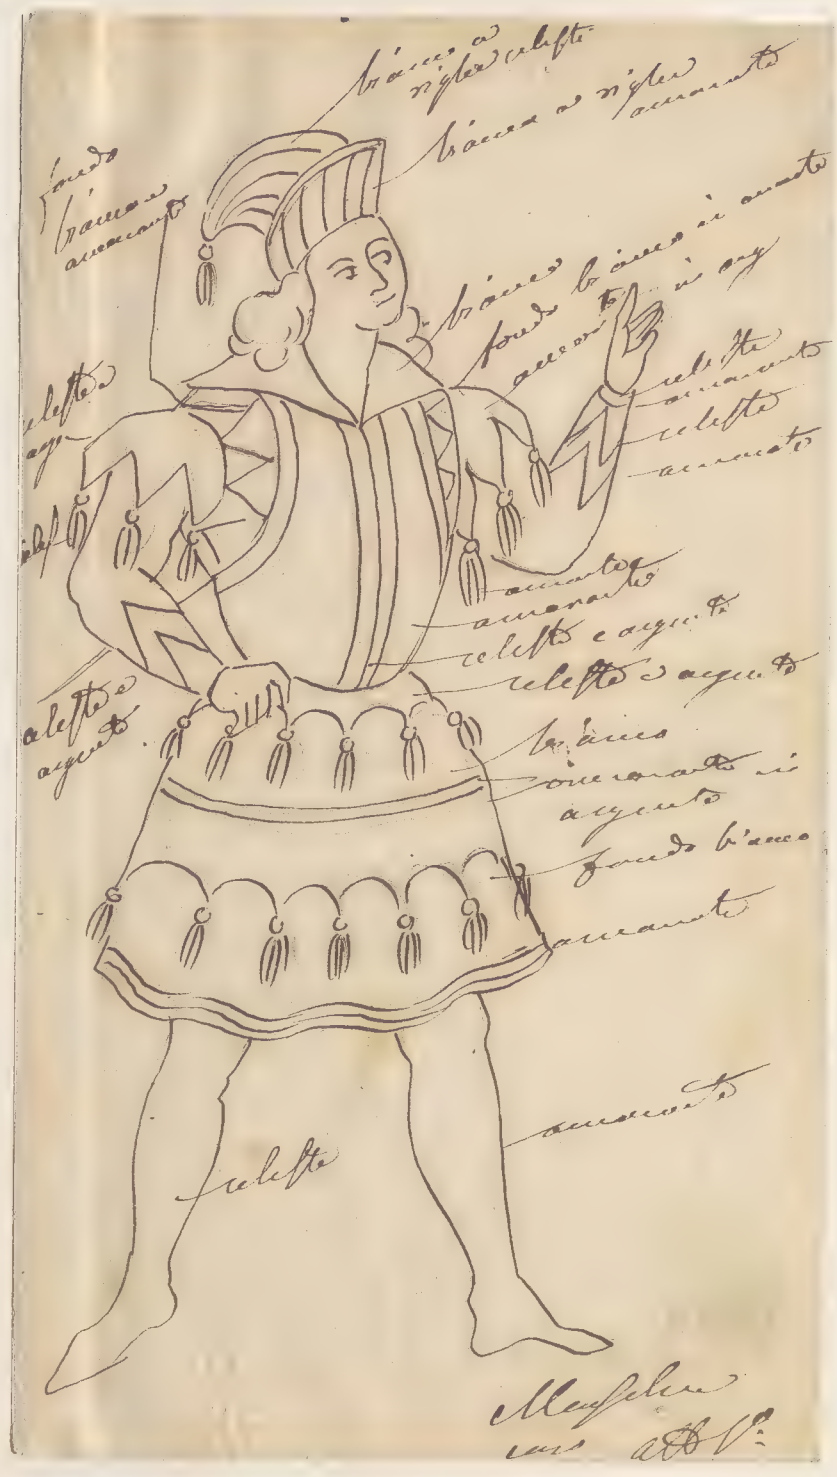 bianco a
righe celeste
bianca a righe
amaranto
fondo
bianco e
amaranto
bianco
fondo bianco in
in arg
celeste
amaranto
celeste
amaranto
celeste e
arge
celest
amaranto
amaranto
celeste e argento
celeste e argento
celeste e
argento
bianco
amaranto in
argento
fondo bianco
amaranto
amaranto
celeste
atto Pº: